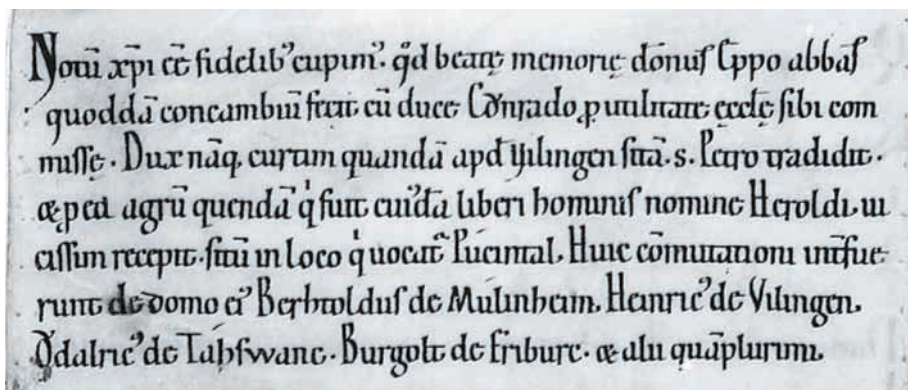 Notū xp̄i eē̄ fidelib⁹ cupim⁹. qđ beatę memorię dōnus Eppo abbas
quoddā concambiū fecit cū duce Cv̊nrado. ꝓ utilitate ęccłę sibi com
missę. Dux nāq. curtim quandā apđ yilingen sitā. s. Petro tradidit.
& p ea agrū quendā qͥ fuit cui⁹dā liberi hominis nomine Heroldi. ui
cissim recepit. sitū in loco qͥ uocat᷑ Rúcintal. Huic cōmutationi int̄fue
runt de domo ei⁹ Berhtoldus de Mulinheim. Heinric⁹ de Vilingen.
Ǒdalric⁹ de Tahswanc. Burgolt de Friburc. & alii quāplurimi.